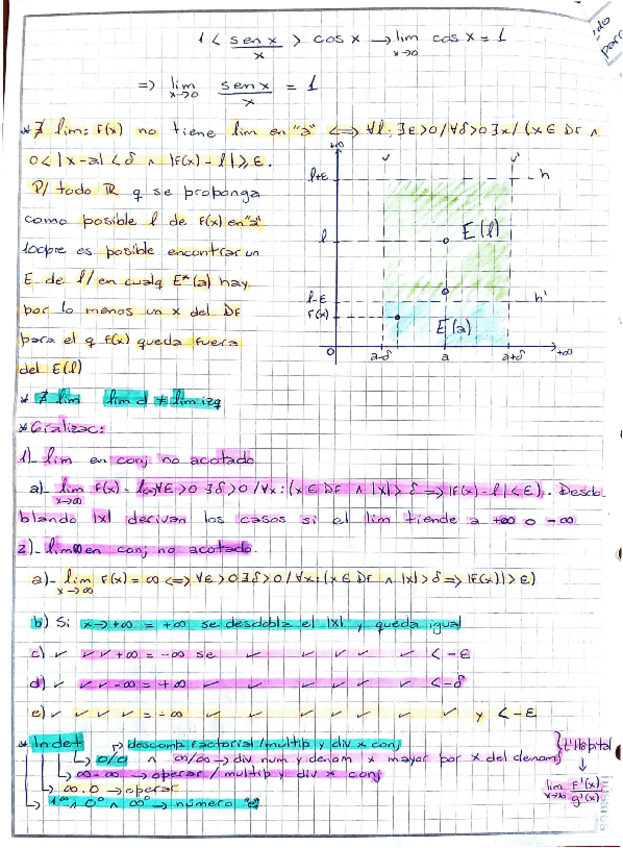 1 < sen x / x > cos x → lim x→0 cos x = 1
=> lim x→0 sen x / x = 1
* ∄ lim: F(x) no tiene lim en "a" <=> ∀l: ∃ε>0/∀δ>0 ∃x/(x∈ DF ∧
0<|x-a|<δ ∧ |F(x)-l|≥ε.
P/ todo ℝ q se proponga
como posible l de F(x) en "a"
es posible encontrar un
E de l/en cualq E*(a) hay
por lo menos un x del DF
para el q F(x) queda fuera
del E(l)
+∞
l+ε
h
l
E(l)
l-ε
h'
F(x)
E(a)
0
a-δ
a
a+δ
+∞
* ∄ lim lim d ≠ lim izq
* Gralizac:
1)- lim en conj no acotado
a)- lim x→∞ F(x) = l <=> ∀ε>0 ∃δ>0/∀x: (x∈ DF ∧ |x|>δ => |F(x)-l|<ε). Desdo
blando |x| derivan los casos si el lim tiende a +∞ o -∞
2)- lim ∞ en conj no acotado.
a)- lim x→∞ F(x) = ∞ <=> ∀ε>0 ∃δ>0/∀x: (x∈ DF ∧ |x|>δ => |F(x)|>ε)
b) Si x→+∞ = +∞ se desdobla el |x| y queda igual
c) ✓ ✓ ✓ +∞ = -∞ se ✓ ✓ ✓ ✓ ✓ <-ε
d) ✓ ✓ ✓ -∞ = +∞ ✓ ✓ ✓ ✓ ✓ ✓ <-δ
e) ✓ ✓ ✓ ✓ = -∞ ✓ ✓ ✓ ✓ ✓ ✓ y <-ε
* Indet → descomp factorial/multip y div x conj
0/0 ∧ ∞/∞ → div num y denom x mayor por x del denom
∞-∞ → operar / multip y div x conj
∞.0 → operar
1^∞ ∧ 0^0 ∧ ∞^0 → número "e"
L'Hôpital
↓
lim x→x0 F'(x) / g'(x)